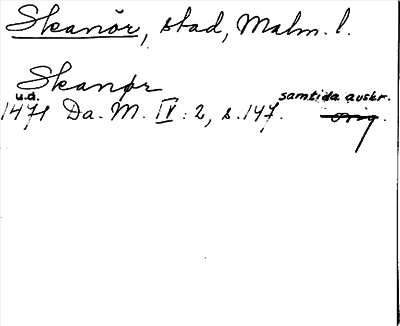 Skanör, stad, Malm. l.
Skanør
u.d. samtida avskr.
1471 Da. M. IV: 2, s. 147. orig.